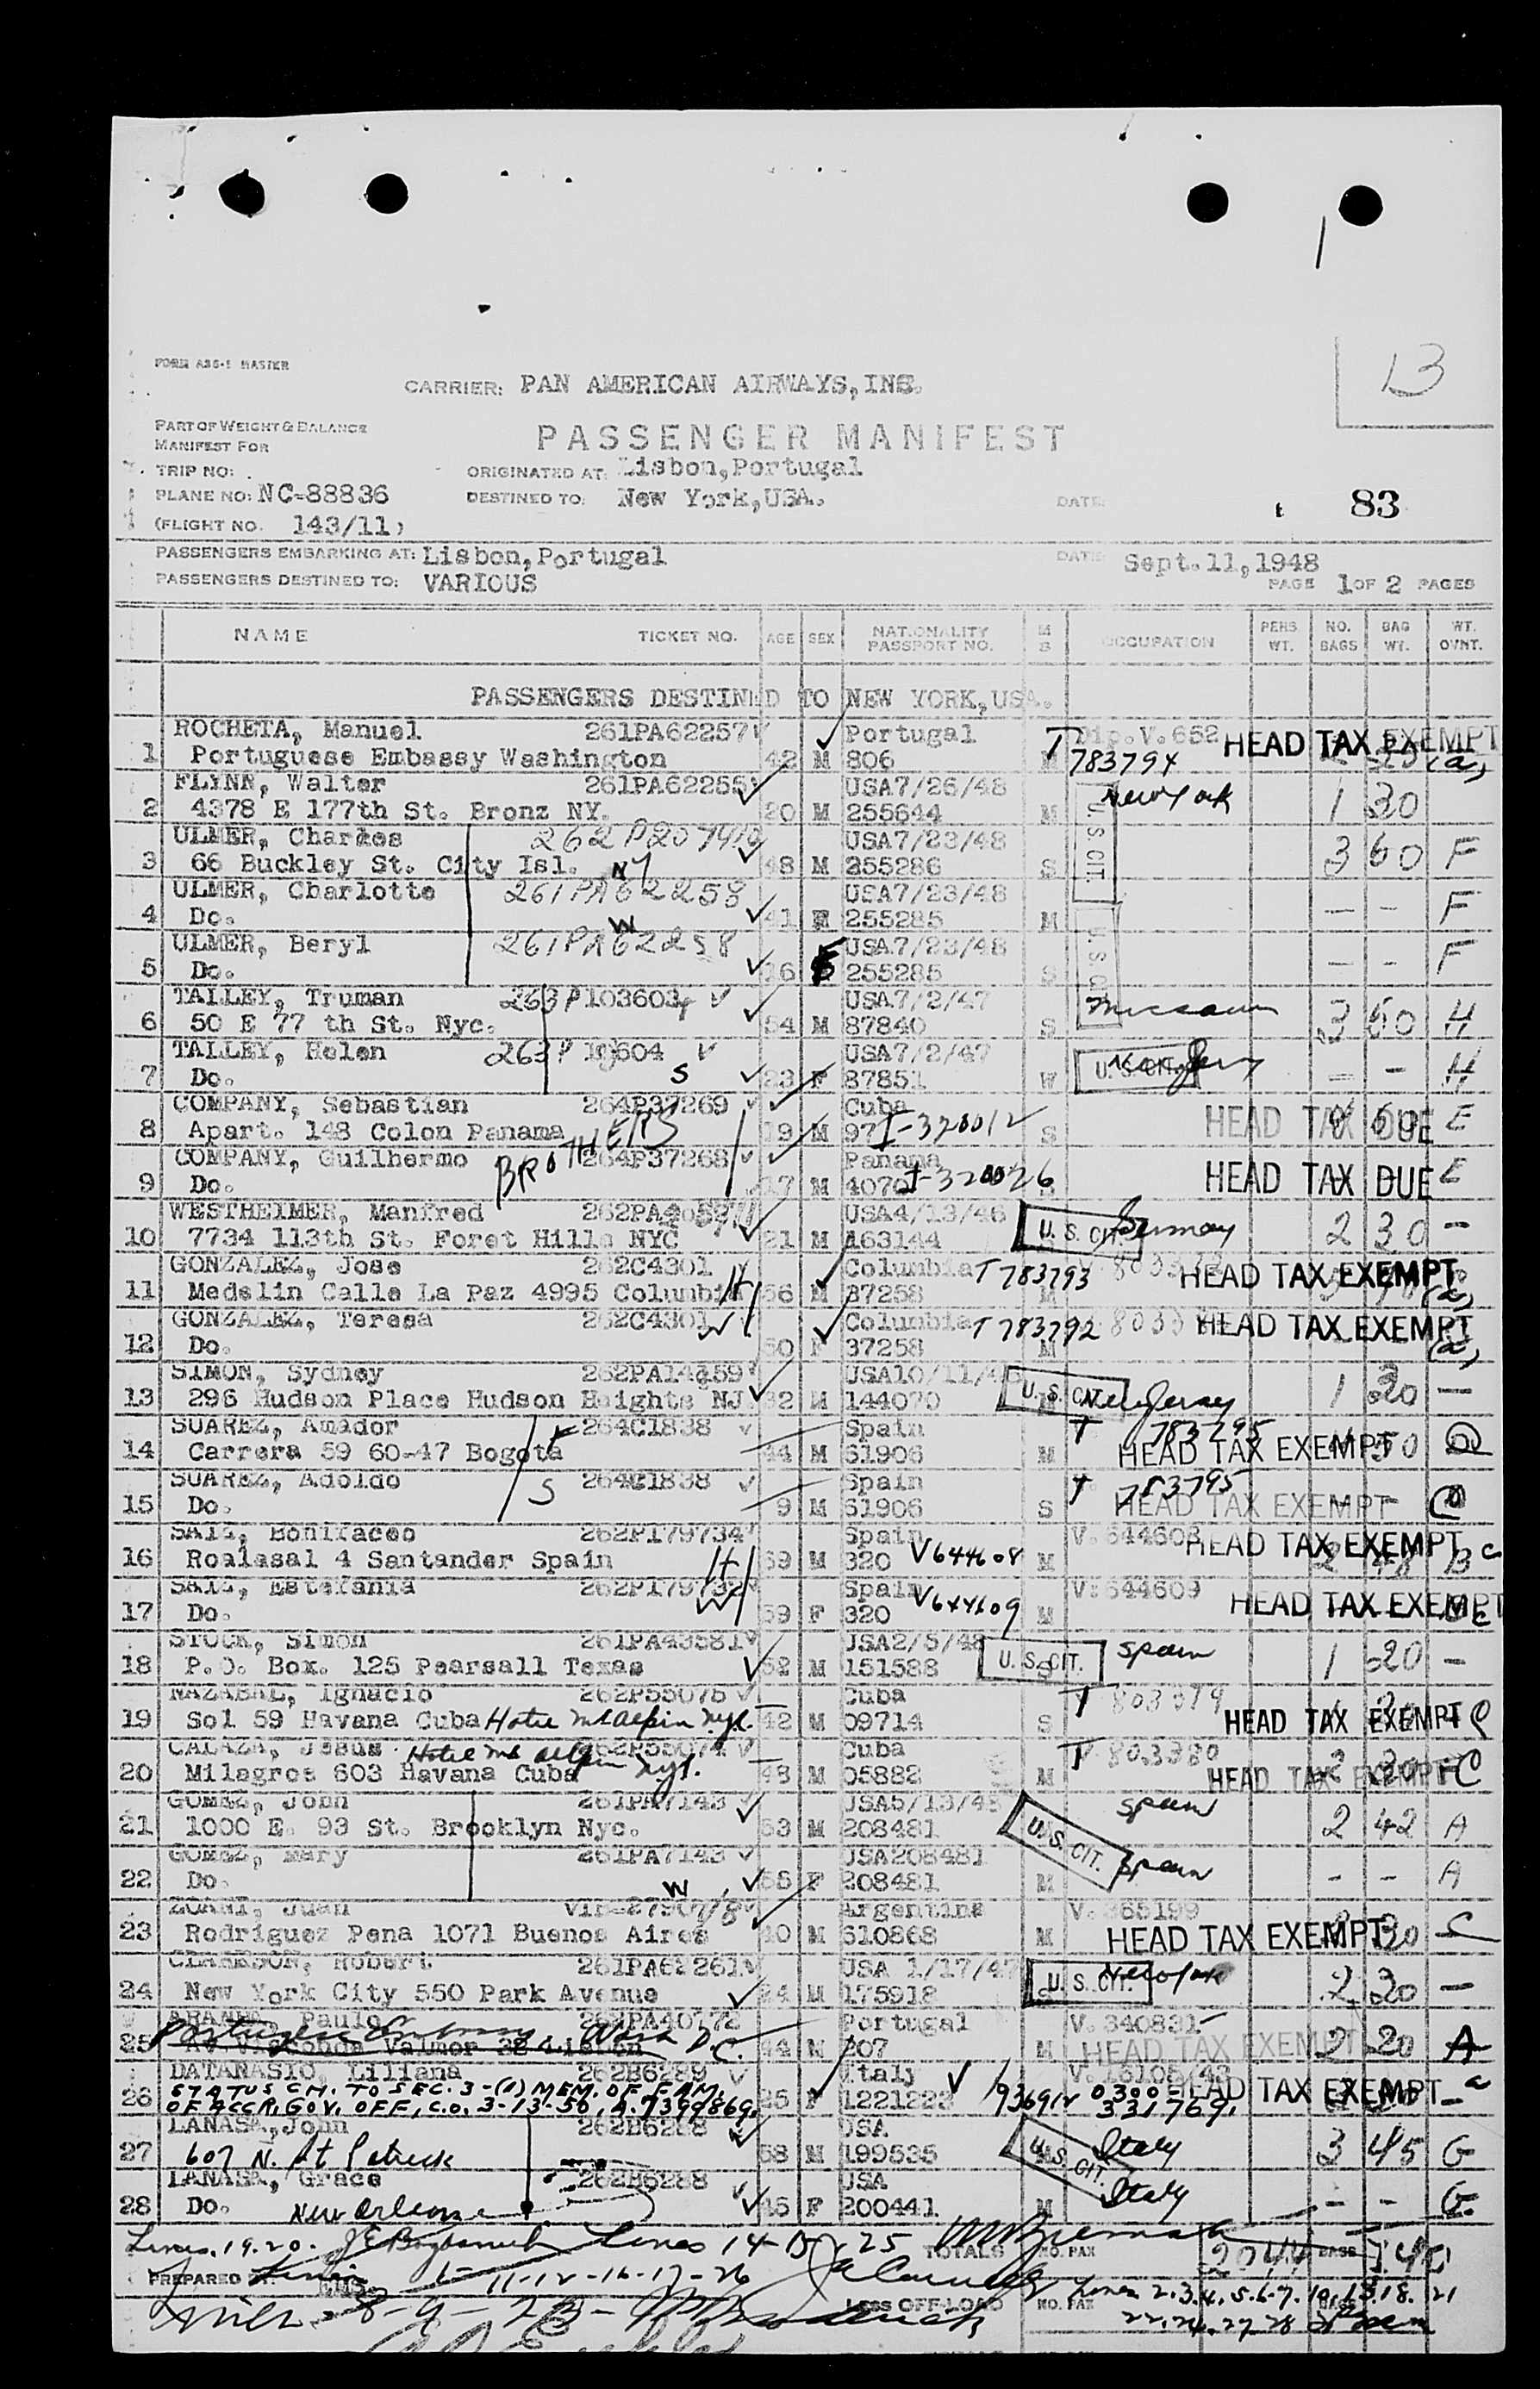 13
FORM A36-1 MASTER
CARRIER: PAN AMERICAN AIRWAYS, INC.
PART OF WEIGHT & BALANCE
MANIFEST FOR
PASSENGER MANIFEST
TRIP NO:
ORIGINATED AT: Lisbon,Portugal
PLANE NO: NC-88836
DESTINED TO: New York,USA.
DATE:
83
(FLIGHT NO. 143/11)
PASSENGERS EMBARKING AT: Lisbon,Portugal
DATE: Sept.11,1948
PASSENGERS DESTINED TO: VARIOUS
PAGE 1 OF 2 PAGES
NAME TICKET NO. AGE SEX NATIONALITY PASSPORT NO. M S OCCUPATION PERS. WT. NO. BAGS BAG WT. WT. OVNT.
PASSENGERS DESTINED TO NEW YORK,USA.
ROCHETA, Manuel 261PA62257 Portugal Dip.V.652 HEAD TAX EXEMPT
1 Portuguese Embassy Washington 42 M 806 M T 783794 (a)
FLYNN, Walter 261PA62255 USA7/26/48 New York
2 4378 E 177th St. Bronz NY. 20 M 255644 M U.S. CIT. 1 30
ULMER, Charles USA7/23/48
3 66 Buckley St. City Isl. NY 48 M 255286 S 3 60 F
ULMER, Charlotte 261PA62258 USA7/23/48
4 Do. W 41 F 255285 M - - F
ULMER, Beryl 261PA62258 USA7/23/48
5 Do. 16 F 255285 S U.S. CIT. - - F
TALLEY, Truman 263P103603 USA7/2/47
6 50 E 77 th St. Nyc. 54 M 87840 S Missouri 3 60 H
TALLEY, Helen USA7/2/47
7 Do. S 23 F 87851 U.S. CIT. - - H
COMPANY, Sebastian 264P37269 Cuba
8 Apart. 148 Colon Panama 19 M I-320012 S HEAD TAX DUE E
COMPANY, Guilhermo BROTHERS 264P37268 Panama
9 Do. 17 M 4070 I-320026 HEAD TAX DUE E
WESTHEIMER, Manfred USA4/13/46
10 7734 113th St. Foret Hills NYC 21 M 163144 U.S. CIT. Germany 2 30 -
GONZALEZ, Jose 262C4301 Columbia T 783793
11 Medelin Calle La Paz 4995 Columbia H 56 M 37258 M HEAD TAX EXEMPT (a)
GONZALEZ, Teresa 262C4301 Columbia T 783792
12 Do. W 50 F 37258 M HEAD TAX EXEMPT (a)
SIMON, Sydney USA10/11/
13 296 Hudson Place Hudson Heights NJ 32 M 144070 U.S. CIT. New Jersey 1 30 -
SUAREZ, Amador 264C1838 Spain T 783795
14 Carrera 59 60-47 Bogota F 44 M 61906 M HEAD TAX EXEMPT
SUAREZ, Adoldo 264C1838 Spain T 783795
15 Do. S 9 M 61906 S HEAD TAX EXEMPT
SAIZ, Bonifaceo 262P179734 Spain V.644608
16 Roalasal 4 Santander Spain H 69 M 320 V644608 M HEAD TAX EXEMPT
SAIZ, Estefania Spain V.644609
17 Do. W 59 F 320 V644609 M HEAD TAX EXEMPT
STOCK, Simon 261PA43581 USA2/5/48
18 P.O. Box. 125 Pearsall Texas 52 M 151588 S U.S. CIT. Spain 1 20 -
NAZABAL, Ignacio 262P55075 Cuba
19 Sol 59 Havana Cuba Hotel McAlpin Nyc. 42 M 09714 S HEAD TAX EXEMPT
CALAZA, Jesus 262P55074 Cuba
20 Milagros 603 Havana Cuba Hotel Mc Alpin Nyc. 48 M 05882 M HEAD TAX EXEMPT
GOMEZ, John 261PA7143 USA5/13/48 Spain
21 1000 E. 93 St. Brooklyn Nyc. 63 M 208481 U.S. CIT. 2 42 A
GOMEZ, Mary 261PA7143 USA208481
22 Do. W 55 F 208481 M Spain - - A
Juan Argentine V.365199
23 Rodriguez Pena 1071 Buenos Aires 40 M 610868 M HEAD TAX EXEMPT
Robert USA 1/17/47
24 New York City 550 Park Avenue 24 M 175918 U.S. CIT. New York 2 30 -
Paulo 262PA40772 Portugal V.340831
25 Portuguese Embassy Wash D.C. 44 M 207 M HEAD TAX EXEMPT 2 20 A
DATANASIO, Liliana 262B6289 Italy
26 STATUS CH. TO SEC. 3-(1) MEM. OF FAM. 25 F 1221223 HEAD TAX EXEMPT
OF ACCR. GOV. OFF., C.O. 3-13-50, A-7399869.
LANASA,John 262B6288 USA
27 607 N. St Patrick 58 M 199535 U.S. CIT. Italy 3 45 G
LANASA, Grace 262B6288 USA
28 Do. New Orleans F 200441 M Italy - - G
Lines 19-20. Lines 14-15, 25 TOTALS NO. PAX
PREPARED BY: 11-12-16-17-26
8-9-23- LESS OFF-LOAD NO. PAX Lines 2.3.4.5.6.7.10.13.18.21
22.24.27 28